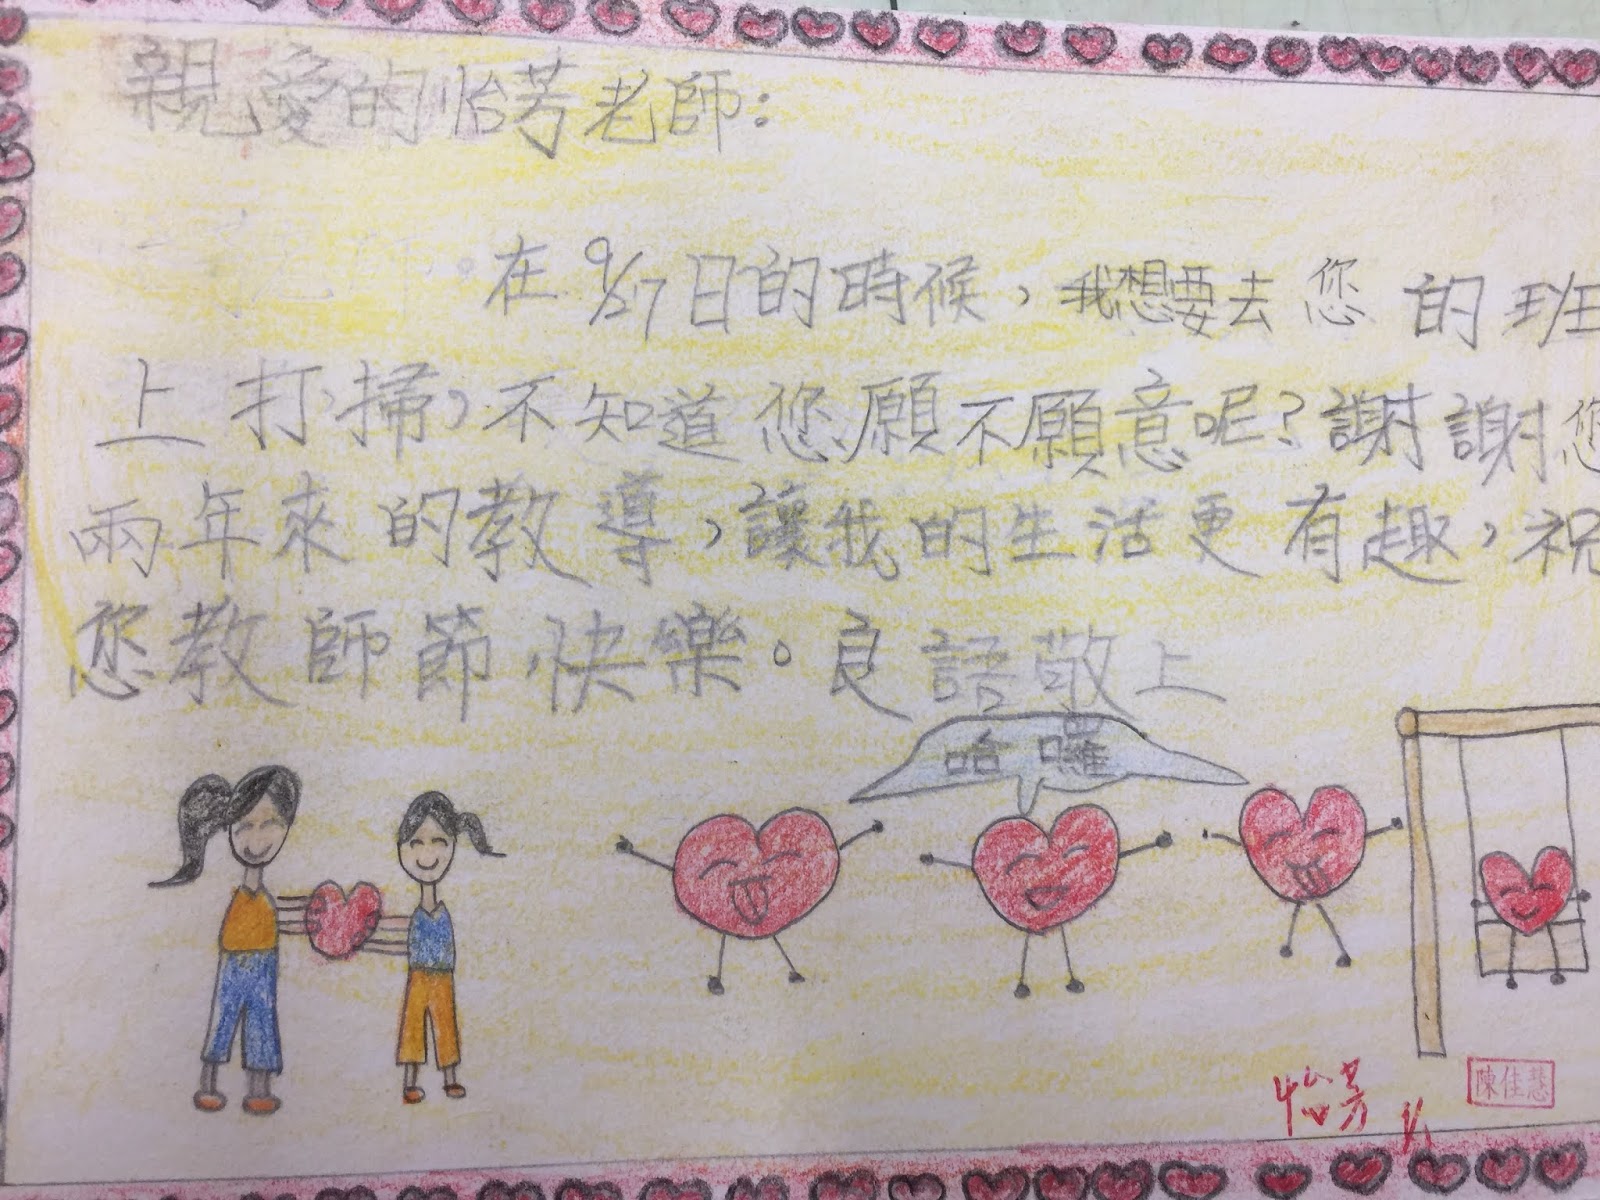 親愛的怡芳老師:
在9/27日的時候，我想要去您的班
上打掃，不知道您願不願意呢?謝謝您
兩年來的教導，讓我的生活更有趣，祝
您教師節快樂。良語敬上
哈囉
怡芳
陳佳慧